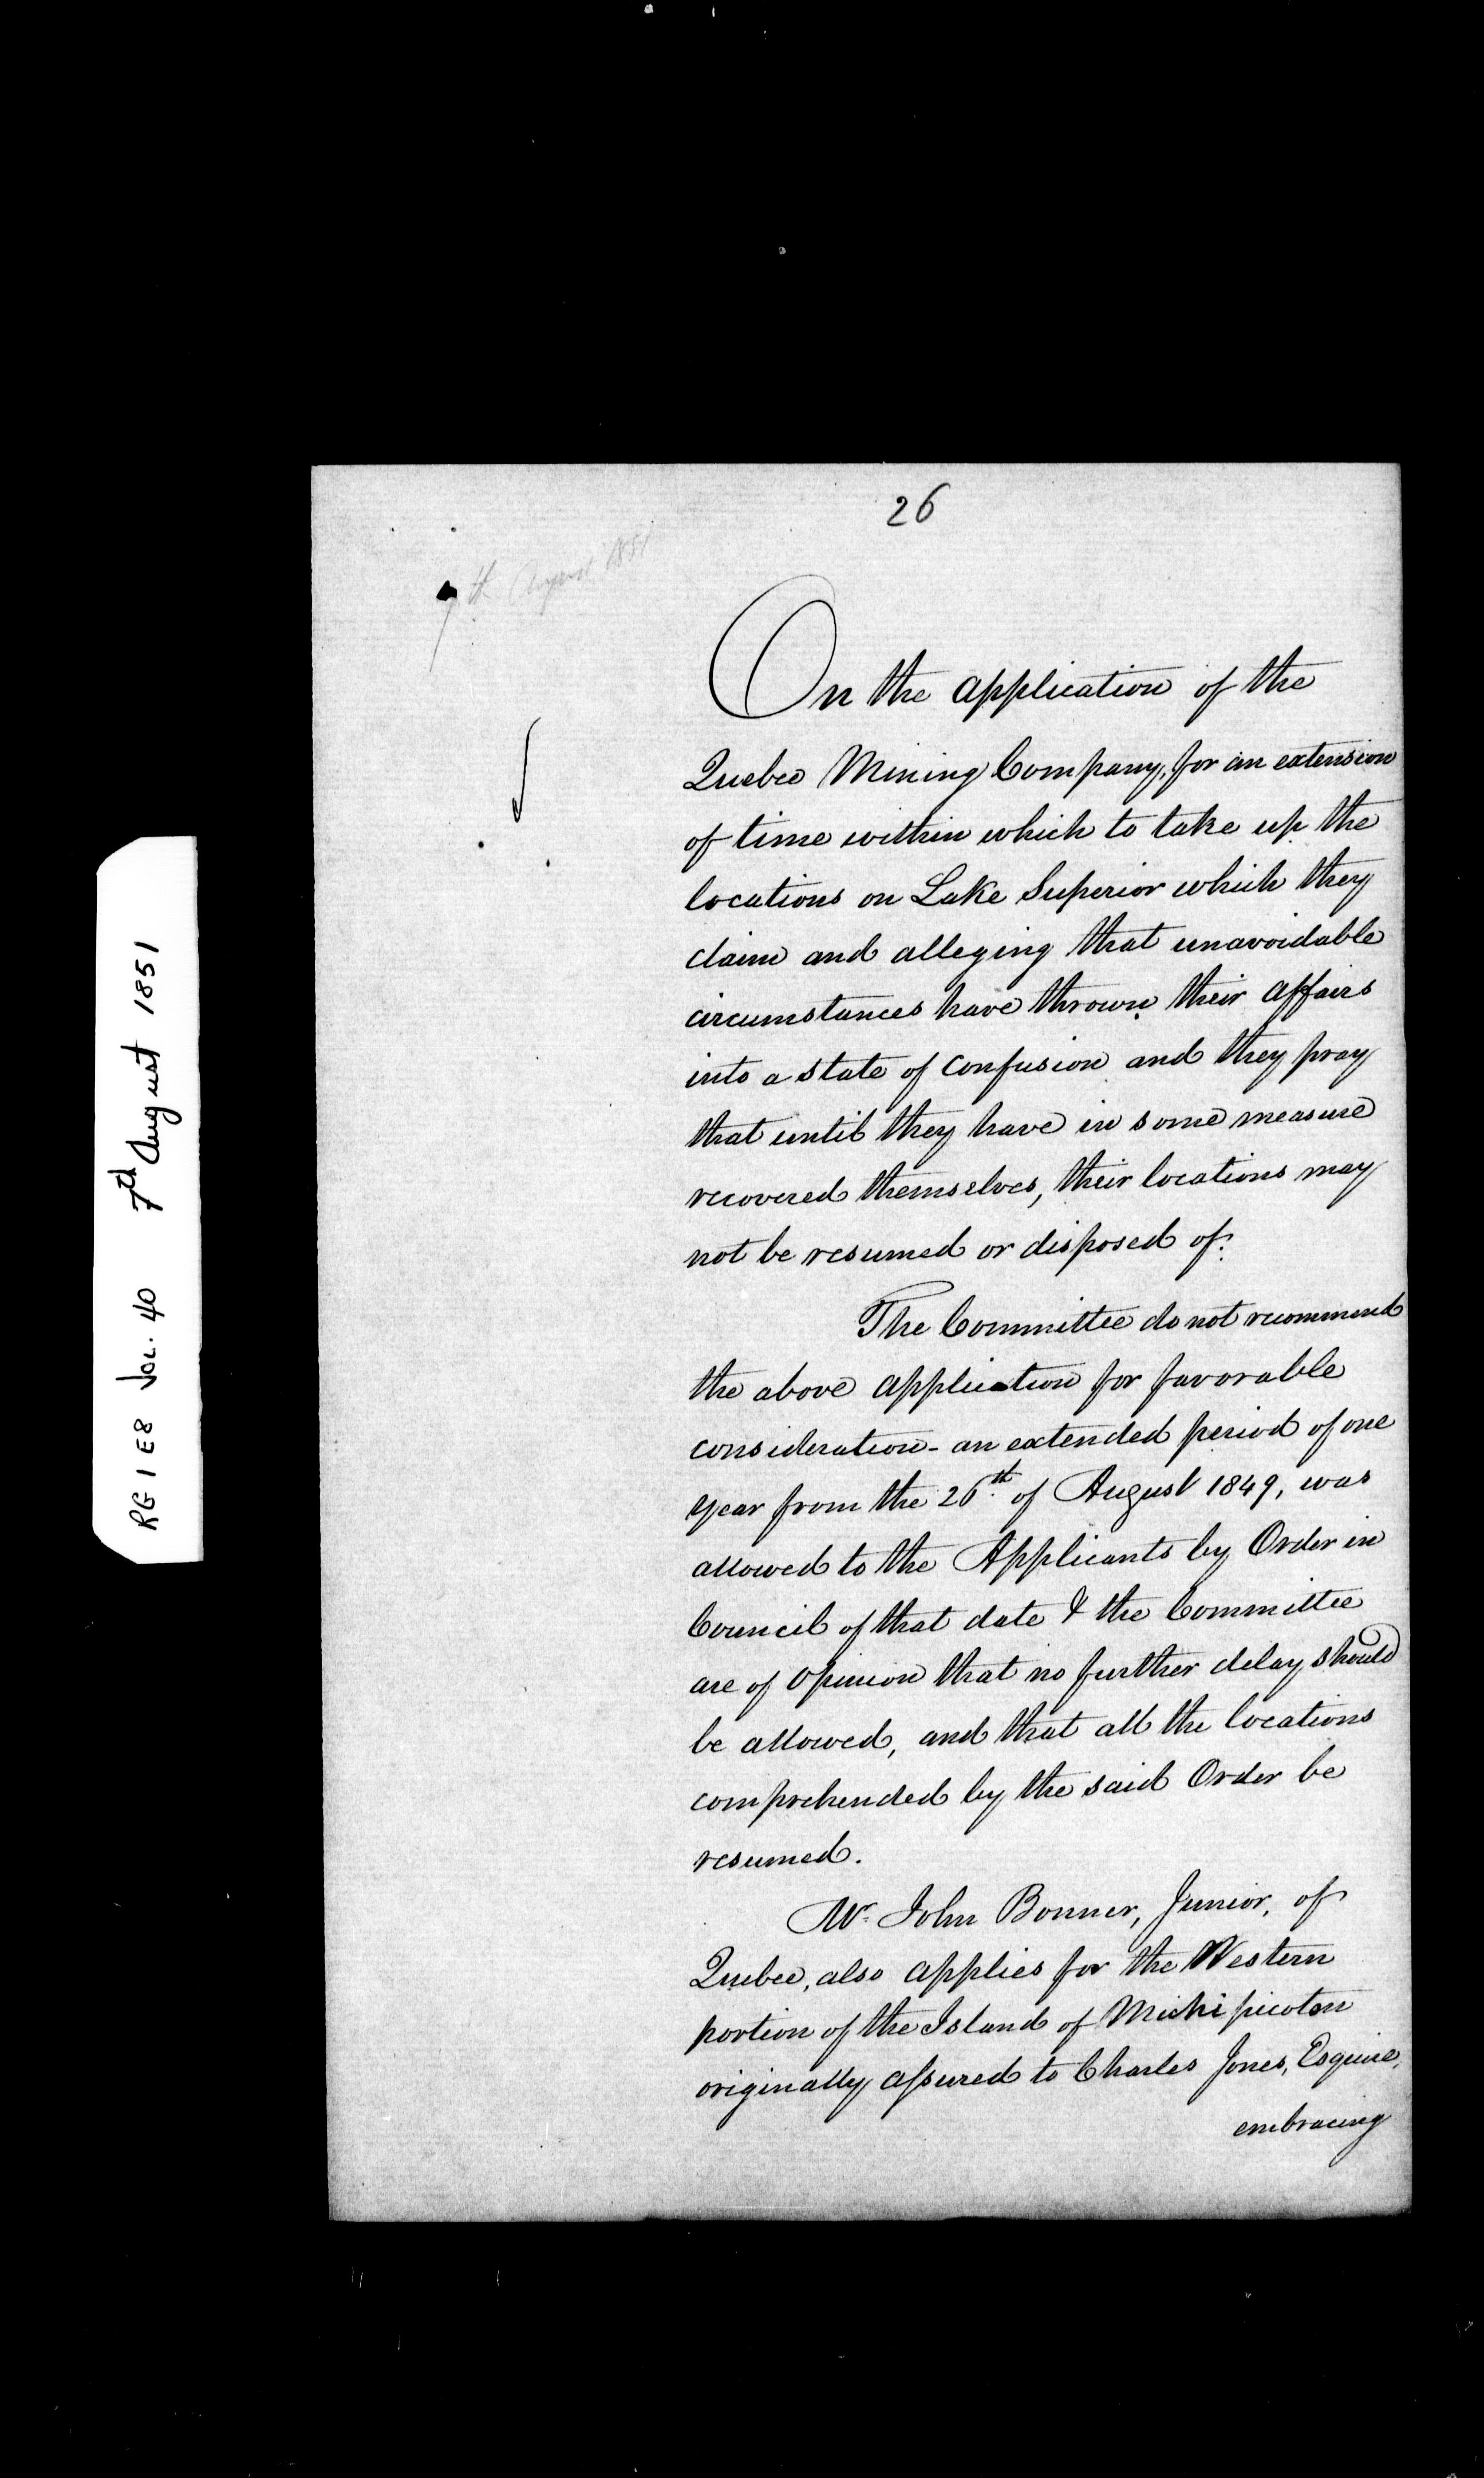 RG 1 E8 Vol. 40 7th August 1851
26
7th August 1851
On the application of the
Quebec Mining Company, for an extension
of time within which to take up the
locations on Lake Superior which they
claim and alleging that unavoidable
circumstances have thrown their affairs
into a state of confusion and they pray
that until they have in some measure
recovered themselves, their locations may
not be resumed or disposed of.
The Committee do not recommend
the above application for favorable
consideration - an extended period of one
year from the 26th of August 1849, was
allowed to the Applicants by Order in
Council of that date & the Committee
are of opinion that no further delay should
be allowed, and that all the locations
comprehended by the said Order be
resumed.
Mr. John Bonner, Junior, of
Quebec, also applies for the Western
portion of the Island of Michipicoton
originally assured to Charles Jones, Esquire,
embracing